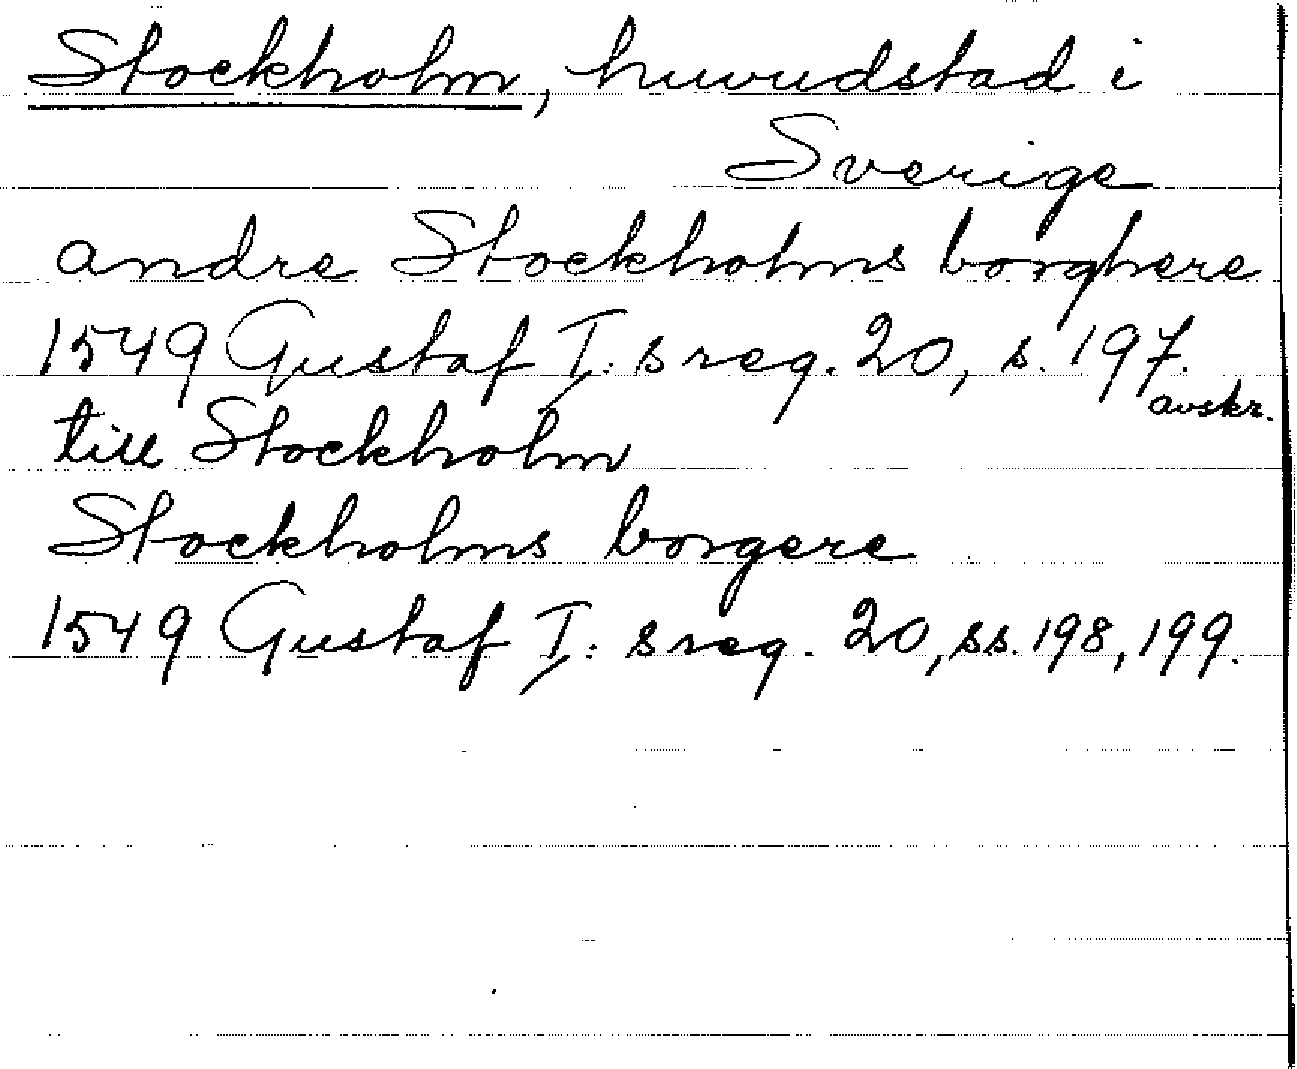 Stockholm, huvudstad i
Sverige
andre Stockholms borghere
1549 Gustaf I: s reg. 20, s. 197.
avskr.
till Stockholm
Stockholms borgere
1549 Gustaf I: s reg. 20, ss. 198, 199.